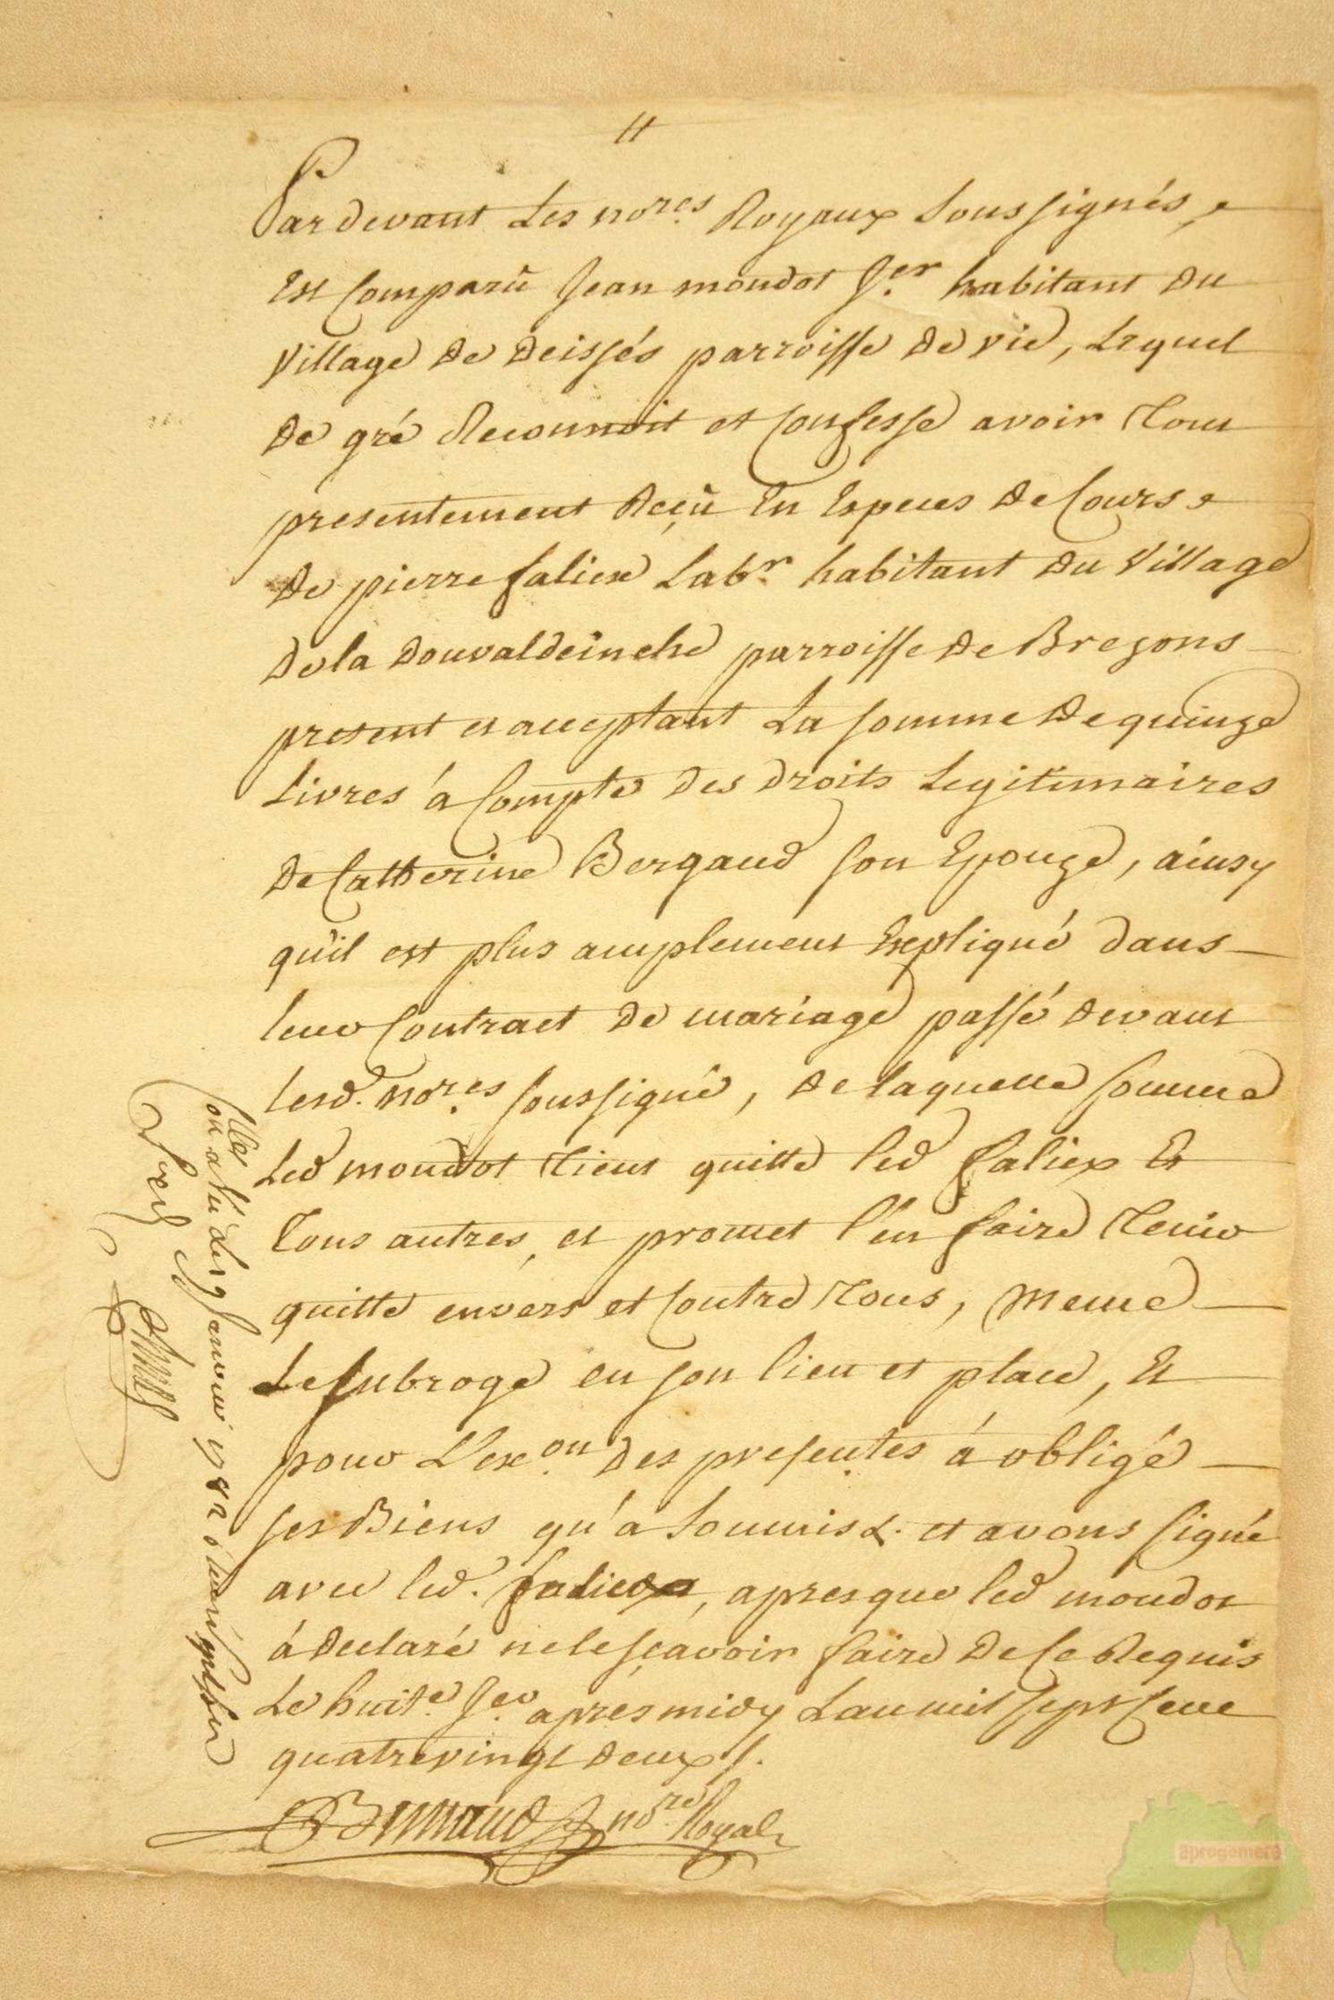 11
Pardevant Les no.res Royaux Soussignés,
Est Comparû Jean mondot J.er habitant Du
Village De Deissés parroisse De vic, Lequel
De gré Reconnoit et Confesse avoir Tout
presentement Reçû En Especes De Cours
De pierre faliex Lab.r habitant Du Village
De la Douvaldeinche parroisse De Brezons
present et acceptant La somme De quinze
Livres á Compte Des Droits Legitimaires
De Catherine Bergaud son Epouze, ainsy
qu'il est plus amplement Expliqué Dans
leur Contract De mariage passé Devant
lesd. no.res soussigné, De laquelle somme
Led mondot Tient quitte led faliex Et
Tous autres, et promet l'en faire Tenir
quitte envers et Contre Tous, Meme
Le subroge en son lieu et place, Et
pour L'ex.on Des presentes á obligé
ses Biens qu'a Soumis &. et avons signé
avec led. faliex, apres que led mondot
á Declaré ne le sçavoir faire De Ce Requis
Le huit.e J.er apres midy L'an mil sept Cent
quatrevingt Deux /.
Bernaud no.re Royal
aprogemere